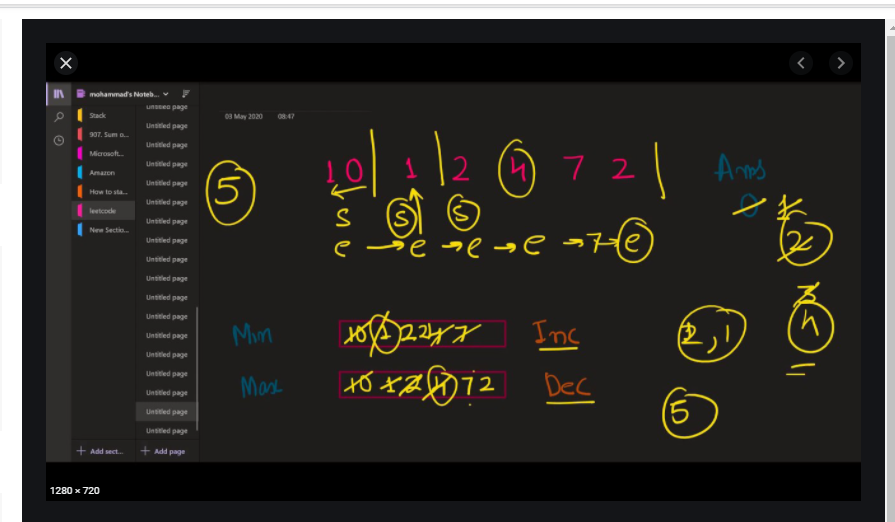 mohammad's Noteb...
Stack
907. Sum o...
Microsoft...
Amazon
How to sta...
leetcode
New Sectio...
Untitled page
Untitled page
Untitled page
Untitled page
Untitled page
Untitled page
Untitled page
Untitled page
Untitled page
Untitled page
Untitled page
Untitled page
Untitled page
Untitled page
Untitled page
Untitled page
Untitled page
Untitled page
Add sect...
Add page
03 May 2020 08:47
5 10 | 1 | 2 4 7 2 |
S S S
e → e → e → e → 7 → e
0
2
4
Min 10 1 2 2 4 7 Inc
Max 10 1 2 4 7 2 Dec
2,1
5
1280 × 720